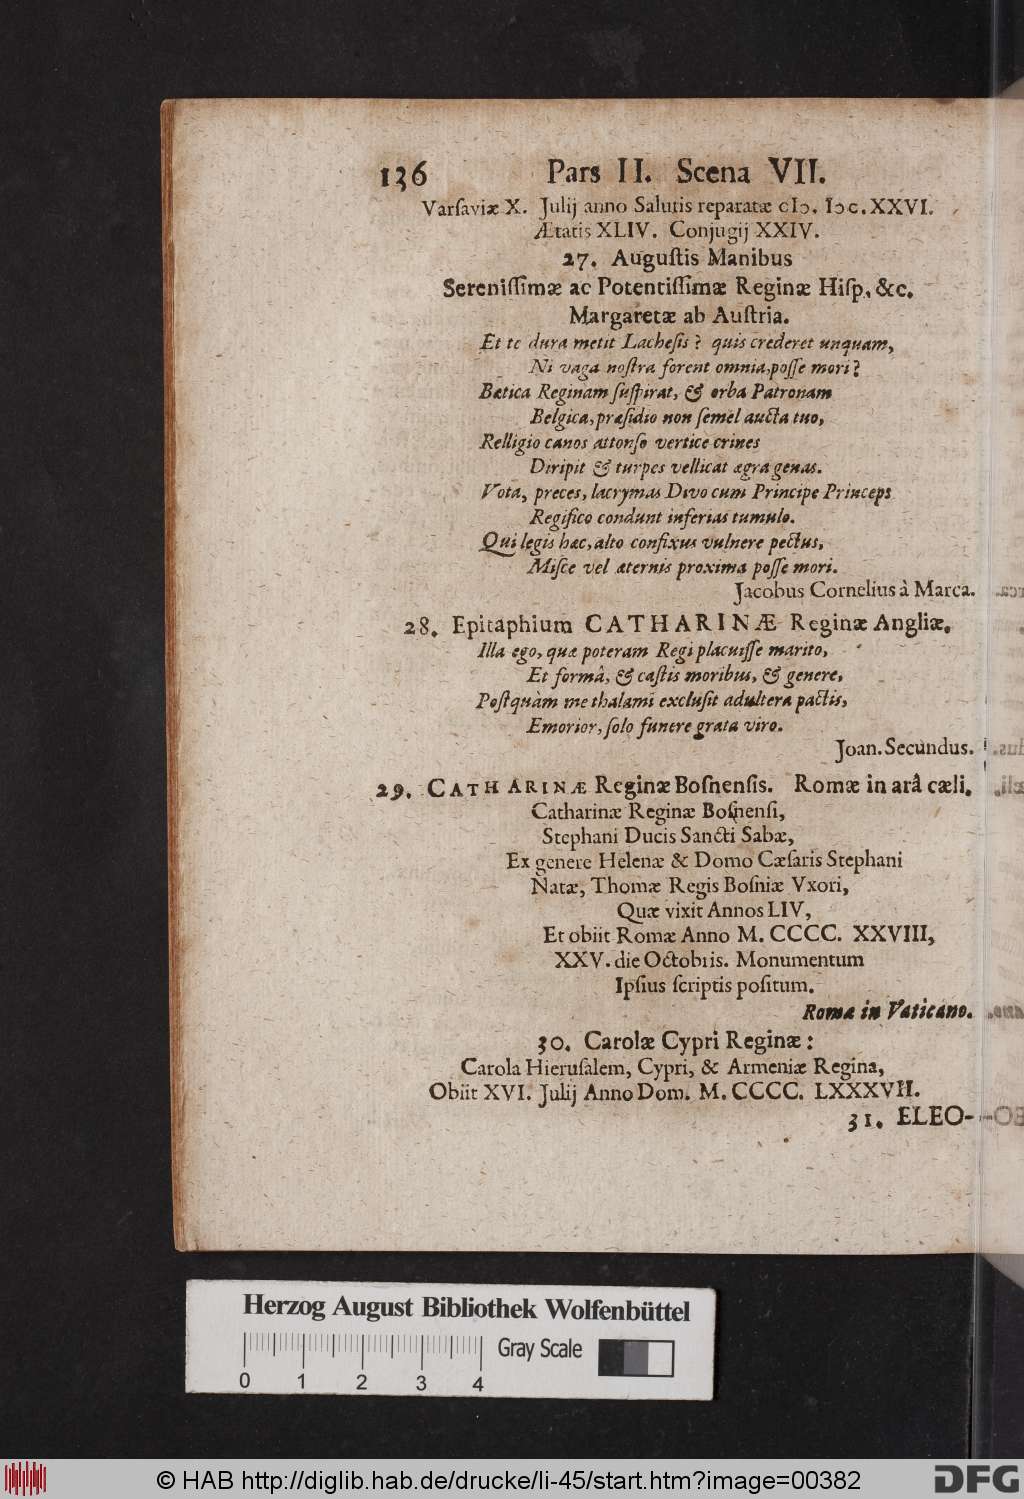 136 Pars II. Scena VII.
Varſaviæ X. Julij anno Salutis reparatæ cIɔ. Iɔc. XXVI.
Ætatis XLIV. Conjugij XXIV.
27. Auguſtis Manibus
Sereniſſimæ ac Potentiſſimæ Reginæ Hiſp, &c.
Margaretæ ab Auſtria.
Et te dura metit Lacheſis? quis crederet unquam,
Ni vaga noſtra forent omnia, poſſe mori?
Bætica Reginam ſuſpirat, & orba Patronam
Belgica, præſidio non ſemel aucta tuo,
Relligio canos attonſo vertice crines
Diripit & turpes vellicat ægra genas.
Vota, preces, lacrymas Divo cum Principe Princeps
Regifico condunt inferias tumulo.
Qui legis hæc, alto confixus vulnere pectus,
Miſce vel æternis proxima poſſe mori.
Jacobus Cornelius à Marca.
28. Epitaphium CATHARINÆ Reginæ Angliæ.
Illa ego, quæ poteram Regi placuiſſe marito,
Et formâ, & caſtis moribus, & genere,
Poſtquàm me thalami excluſit adultera pactis,
Emorior, ſolo funere grata viro.
Joan. Secundus.
29. CATHARINÆ Reginæ Boſnenſis. Romæ in arâ cæli.
Catharinæ Reginæ Boſnenſi,
Stephani Ducis Sancti Sabæ,
Ex genere Helenæ & Domo Cæſaris Stephani
Natæ, Thomæ Regis Boſniæ Vxori,
Quæ vixit Annos LIV,
Et obiit Romæ Anno M. CCCC. XXVIII,
XXV. die Octobris. Monumentum
Ipſius ſcriptis poſitum.
Romæ in Vaticano.
30. Carolæ Cypri Reginæ:
Carola Hieruſalem, Cypri, & Armeniæ Regina,
Obiit XVI. Julij Anno Dom. M. CCCC. LXXXVII.
31. ELEO-
Herzog August Bibliothek Wolfenbüttel
Gray Scale
0 1 2 3 4
© HAB http://diglib.hab.de/drucke/li-45/start.htm?image=00382
DFG